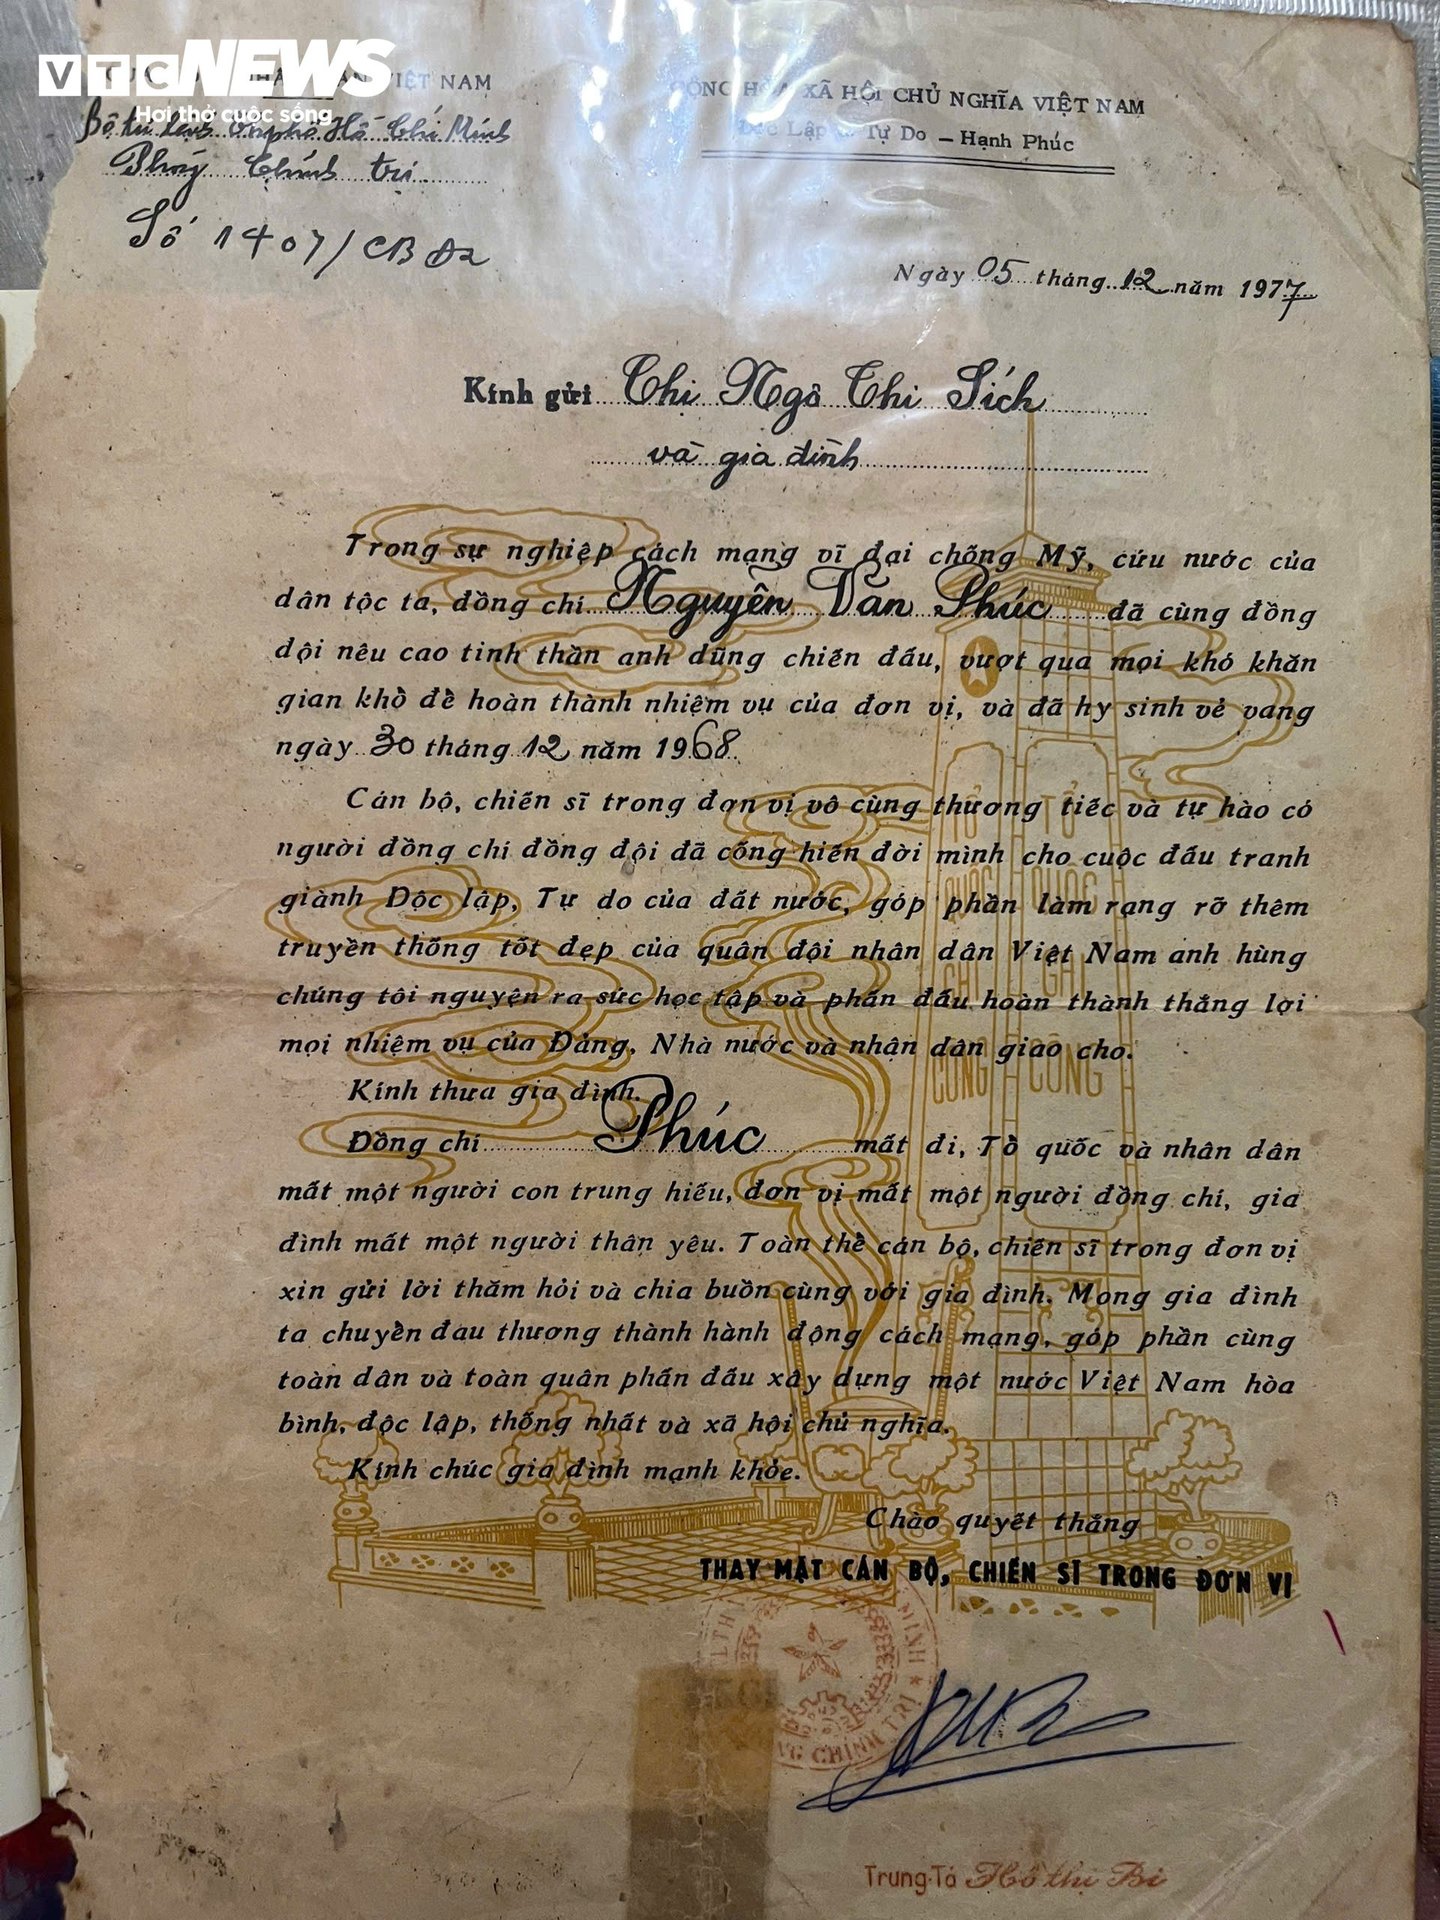 VTC NEWS
Hơi thở cuộc sống
VIỆT NAM
Bộ Tư lệnh thành phố Hồ Chí Minh
Phòng Chính trị
Số 1407/CBĐ2
CỘNG HÒA XÃ HỘI CHỦ NGHĨA VIỆT NAM
Độc Lập – Tự Do – Hạnh Phúc
Ngày 05 tháng 12 năm 1977
Kính gửi Chị Ngô Thi Sích
và gia đình
Trong sự nghiệp cách mạng vĩ đại chống Mỹ, cứu nước của
dân tộc ta, đồng chí Nguyễn Văn Phúc đã cùng đồng
đội nêu cao tinh thần anh dũng chiến đấu, vượt qua mọi khó khăn
gian khổ để hoàn thành nhiệm vụ của đơn vị, và đã hy sinh vẻ vang
ngày 30 tháng 12 năm 1968
Cán bộ, chiến sĩ trong đơn vị vô cùng thương tiếc và tự hào có
người đồng chí đồng đội đã cống hiến đời mình cho cuộc đấu tranh
giành Độc lập, Tự do của đất nước, góp phần làm rạng rỡ thêm
truyền thống tốt đẹp của quân đội nhân dân Việt Nam anh hùng
chúng tôi nguyện ra sức học tập và phấn đấu hoàn thành thắng lợi
mọi nhiệm vụ của Đảng, Nhà nước và nhận dân giao cho.
Kính thưa gia đình.
Đồng chí Phúc mất đi, Tổ quốc và nhân dân
mất một người con trung hiếu, đơn vị mất một người đồng chí, gia
đình mất một người thân yêu. Toàn thể cán bộ, chiến sĩ trong đơn vị
xin gửi lời thăm hỏi và chia buồn cùng với gia đình. Mong gia đình
ta chuyển đau thương thành hành động cách mạng, góp phần cùng
toàn dân và toàn quân phấn đấu xây dựng một nước Việt Nam hòa
bình, độc lập, thống nhất và xã hội chủ nghĩa.
Kính chúc gia đình mạnh khỏe.
Chào quyết thắng
THAY MẶT CÁN BỘ, CHIẾN SĨ TRONG ĐƠN VỊ
TỔ QUỐC GHI CÔNG
TỔ QUỐC GHI CÔNG
MINH
CHÍNH TRỊ
Trung Tá Hồ thị Bi